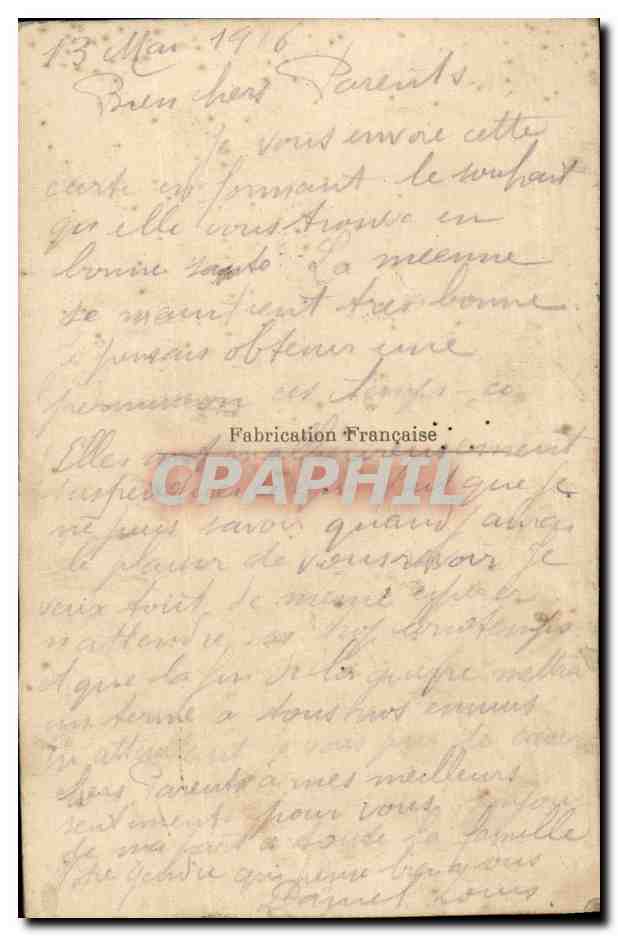 13 Mai 1916
Bien chers Parents
Je vous envoie cette
carte en formant le souhait
qu'elle vous trouve en
bonne santé La mienne
se maintient très bonne
je pensais obtenir une
permission ces temps-ci
Fabrication Française
Elles sont malheureusement
suspendues que je
CPAPHIL
ne puis savoir quand j'aurai
le plaisir de vous revoir Je
veux tout de même espérer
n'attendre pas trop longtemps
et que la fin de la guerre mettra
un terme à tous nos ennuis
En attendant je vous prie de croire
chers Parents à mes meilleurs
sentiments pour vous
à toute la famille
gendre qui aime bien vous
Daniel Louis